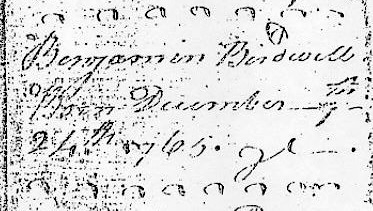 Benjamin Birdwell
Born December
24th 1765.